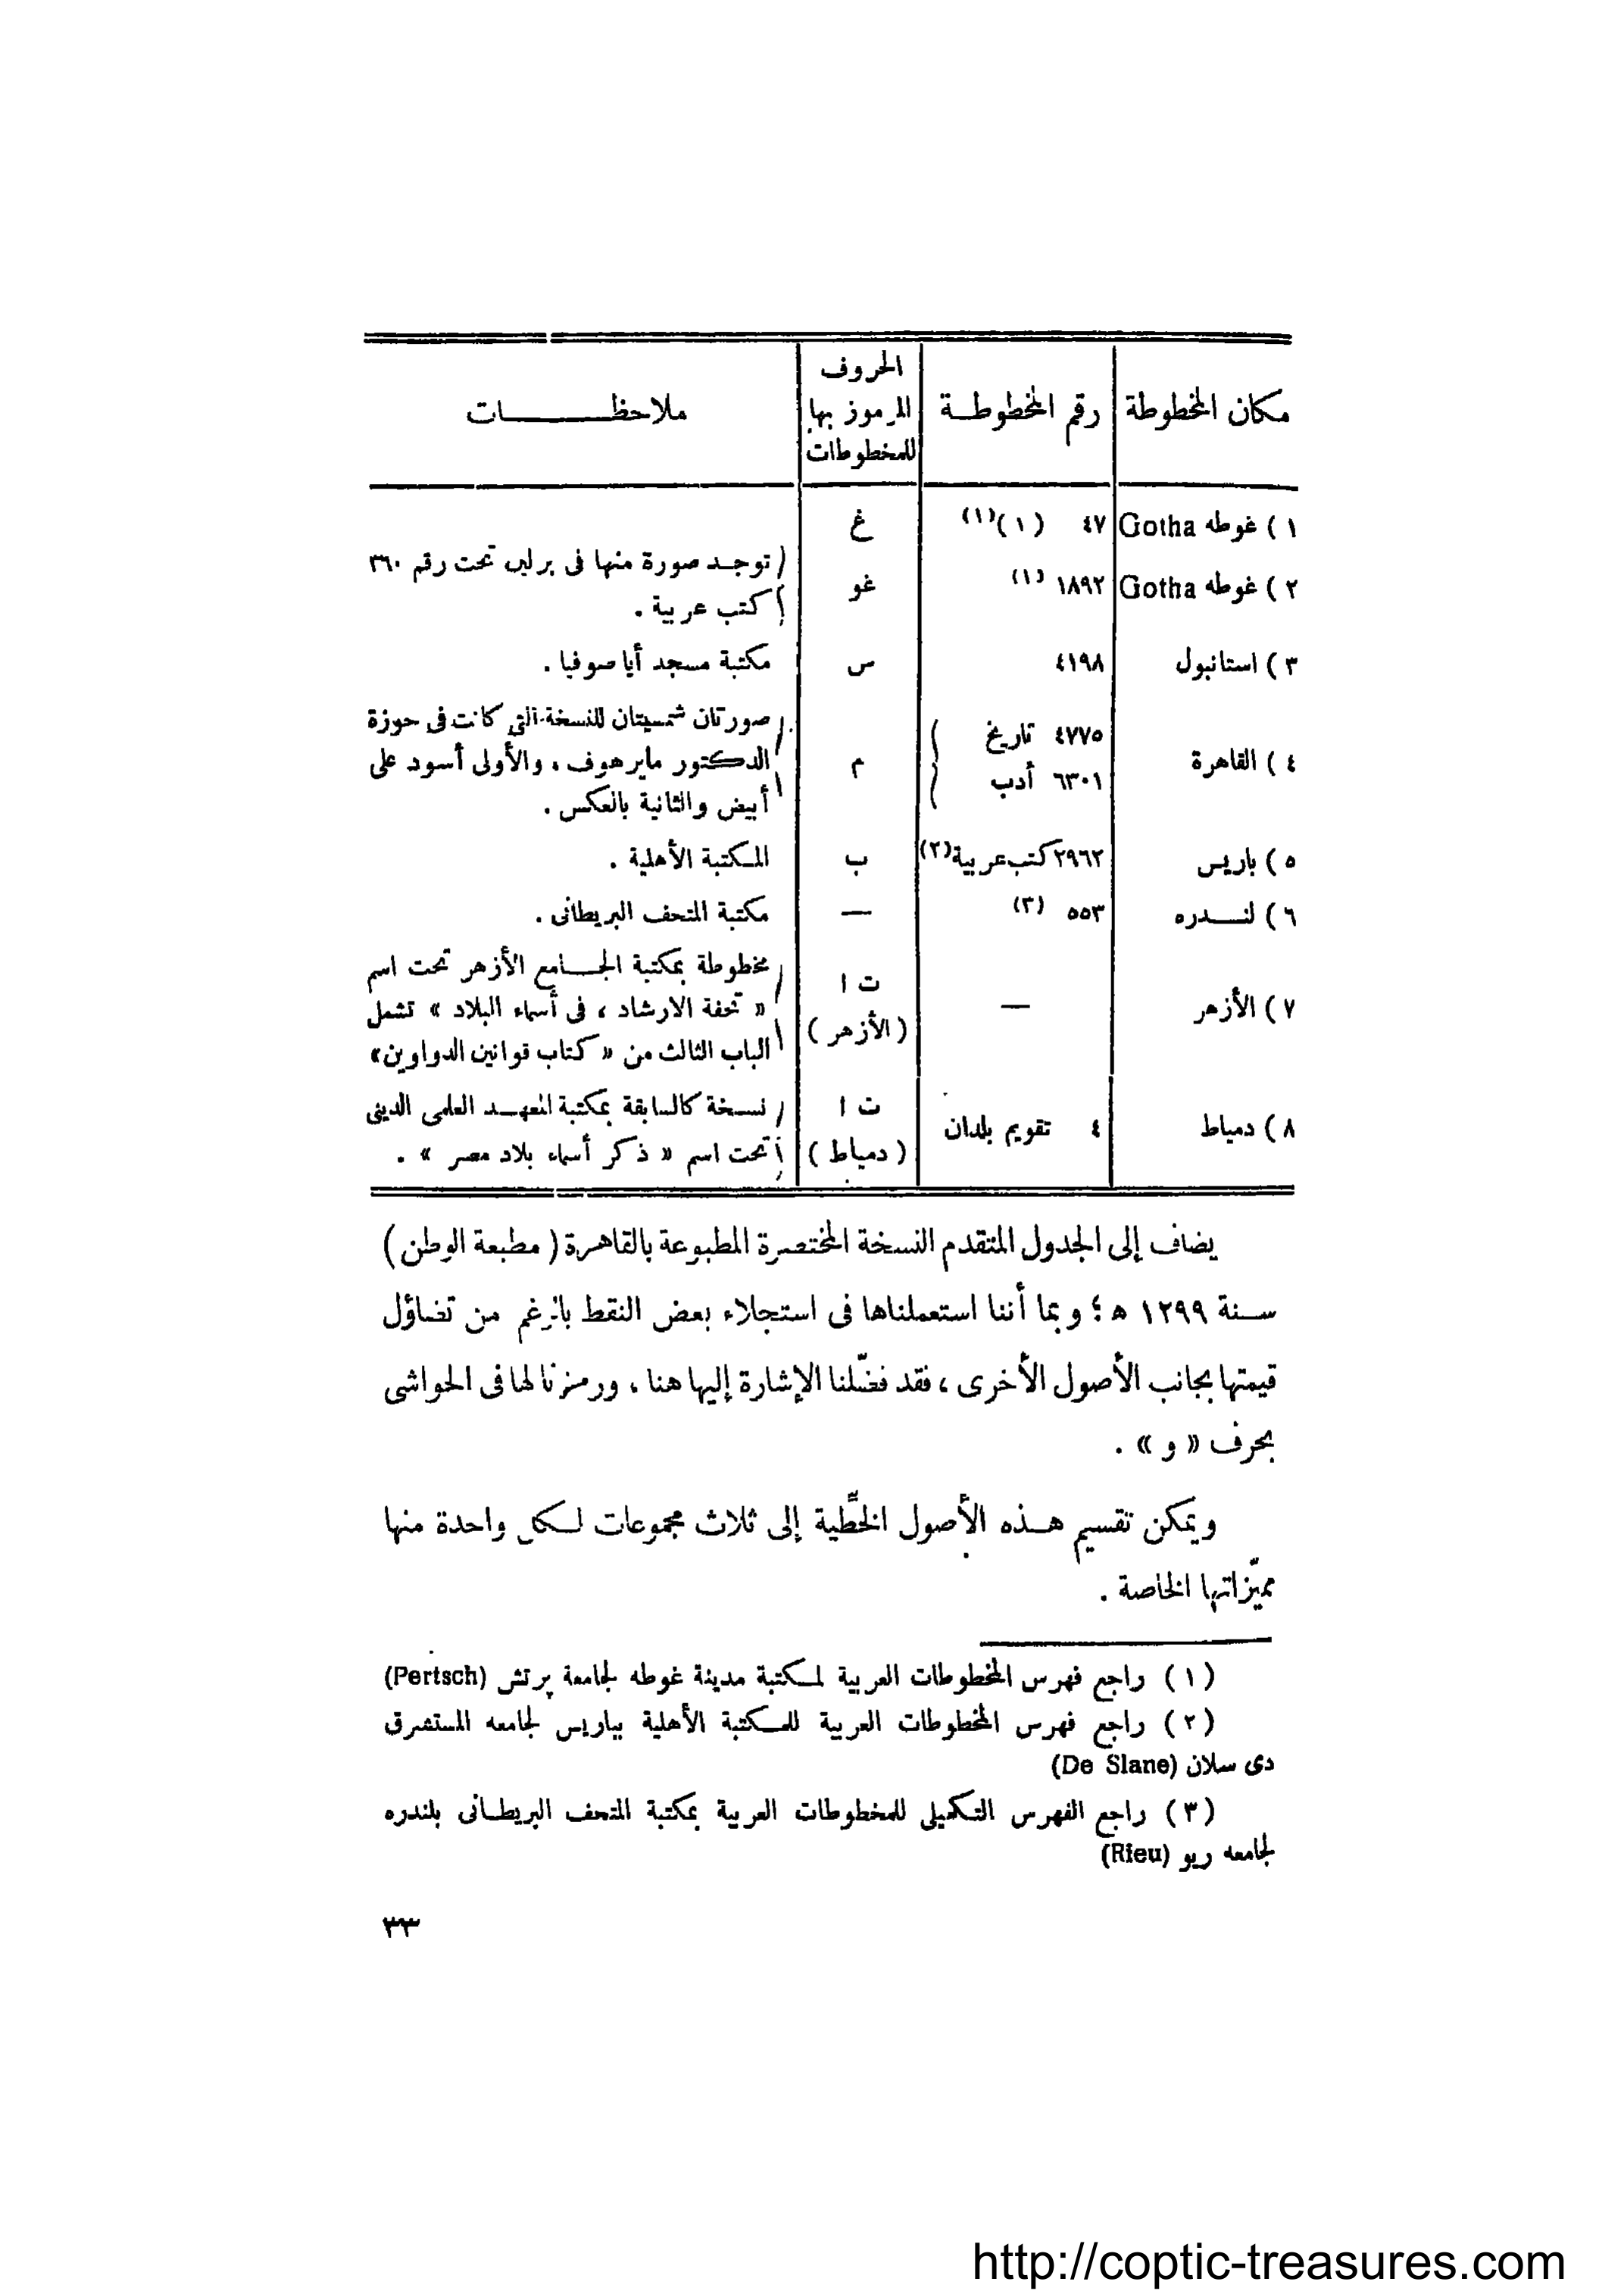 مكان المخطوطة | رقم المخطوطة | الحروف المرموز بها للمخطوطات | ملاحظات
١ ) غوطه Gotha | ٤٧ ( ١ ) (١) | غ |
٢ ) غوطه Gotha | ١٨٩٢ (١) | غو | توجد صورة منها فى برلين تحت رقم ٣٦٠ كتب عربية .
٣ ) استانبول | ٤١٩٨ | س | مكتبة مسجد أيا صوفيا .
٤ ) القاهرة | ٤٧٧٥ تاريخ ٦٣٠١ أدب | م | صورتان شمسيتان للنسخة التى كانت فى حوزة الدكتور مايرهوف . والأولى أسود على أبيض والثانية بالعكس .
٥ ) باريس | ٢٩٦٢ كتب عربية (٢) | ب | المكتبة الأهلية .
٦ ) لندره | ٥٥٣ (٣) | — | مكتبة المتحف البريطانى .
٧ ) الأزهر | — | ت ا ( الأزهر ) | مخطوطة بمكتبة الجامع الأزهر تحت اسم « تحفة الارشاد ، فى أسماء البلاد » تشمل الباب الثالث من « كتاب قوانين الدواوين»
٨ ) دمياط | ٤ تقويم بلدان | ت ا ( دمياط ) | نسخة كالسابقة بمكتبة المعهد العلمى الدينى تحت اسم « ذكر أسماء بلاد مصر » .
يضاف إلى الجدول المتقدم النسخة المختصرة المطبوعة بالقاهرة ( مطبعة الوطن )
سنة ١٢٩٩ ه ؛ وبما أننا استعملناها فى استجلاء بعض النقط بالرغم من تضاؤل
قيمتها بجانب الأصول الأخرى ، فقد فضّلنا الإشارة إليها هنا ، ورمزنا لها فى الحواشى
بحرف « و » .
ويمكن تقسيم هذه الأصول الخطِّية إلى ثلاث مجموعات لكل واحدة منها
مميّزاتها الخاصة .
( ١ ) راجع فهرس المخطوطات العربية لمكتبة مدينة غوطه لجامعة پرتش (Pertsch)
( ٢ ) راجع فهرس المخطوطات العربية للمكتبة الأهلية بباريس لجامعه المستشرق
دى سلان (De Slane)
( ٣ ) راجع الفهرس التكميلى للمخطوطات العربية بمكتبة المتحف البريطانى بلندره
لجامعه ريو (Rieu)
٣٣
http://coptic-treasures.com